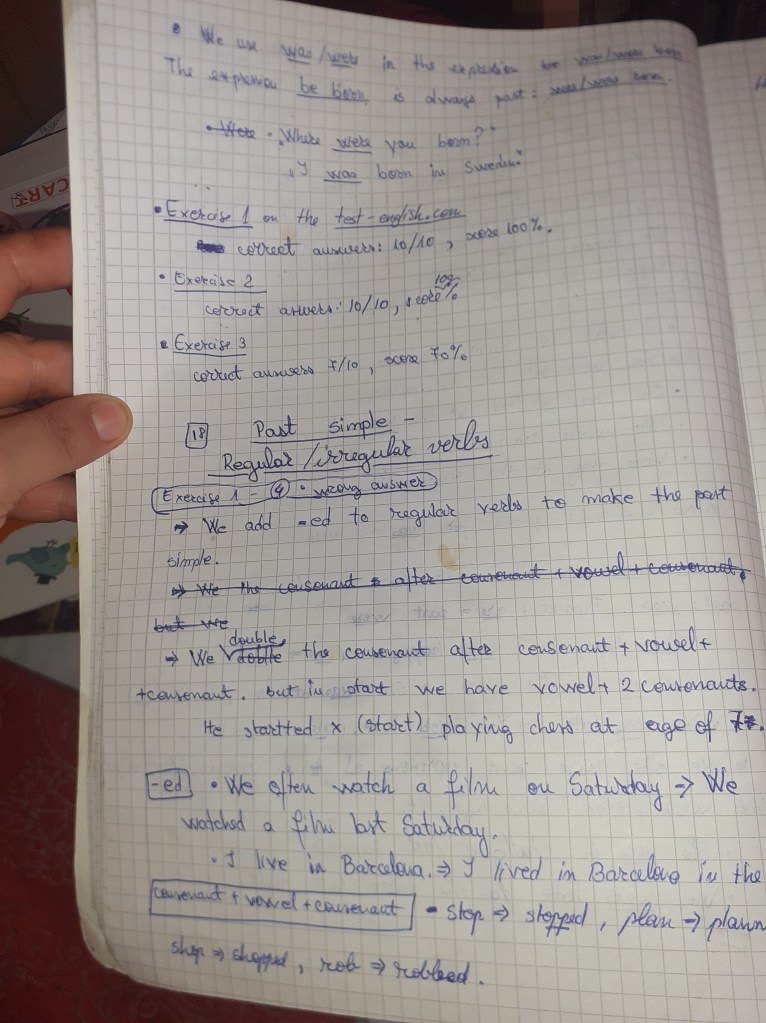 • We use was/were in the expression be was/were born
The expression be born is always past: was/were born.
Were - "Where were you born?"
"I was born in Sweden."
CART
• Exercise 1 on the test-english.com
correct answers: 10/10, score 100%.
• Exercise 2
correct anwers: 10/10, score 100%
• Exercise 3
correct answers 7/10, score 70%
18 Past simple -
Regular/irregular verbs
Exercise 1 - 9 • wrong answer
→ We add -ed to regular verbs to make the past
simple.
→ We the consenant after consenant + vowel + consenant,
but we
→ We double the consenant after consenant + vowel +
+consenant. but in start we have vowel + 2 consenants.
He startted x (start) playing chess at age of 7.
-ed • We often watch a film on Saturday → We
watched a film last Saturday.
• I live in Barcelona. → I lived in Barcelona in the
consenant + vowel + consenant - stop → stopped, plan → plann
shop → shopped, rob → robbed.